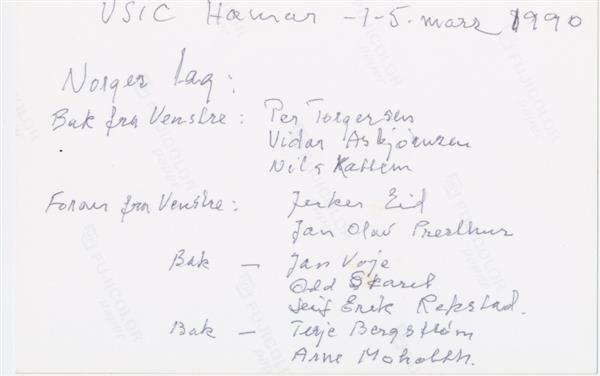 USIC Hamar - 1-5. mars 1990
Norges lag:
Bak fra Venstre: Per Torgersen
Vidar Asbjørnsen
Nils Kattem
Foran fra Venstre: Jerker Eid
Jan Olav Presthus
Bak - Jan Voje
Odd Skaret
Leif Erik Rekstad.
Bak - Terje Bergstrøm
Arne Moholdt.
FUJICOLOR